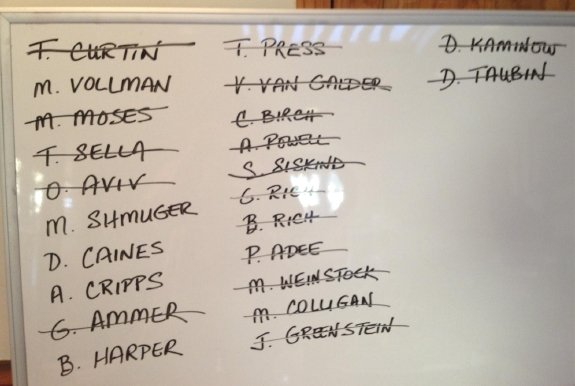 T. CURTIN
M. VOLLMAN
M. MOSES
T. SELLA
O. AVIV
M. SHMUGER
D. CAINES
A. CRIPPS
G. AMMER
B. HARPER
T. PRESS
V. VAN GALDER
C. BIRCH
A. POWELL
S. SISKIND
G. RICH
B. RICH
P. ADEE
M. WEINSTOCK
M. COLLIGAN
J. GREENSTEIN
D. KAMINOW
D. TAUBIN